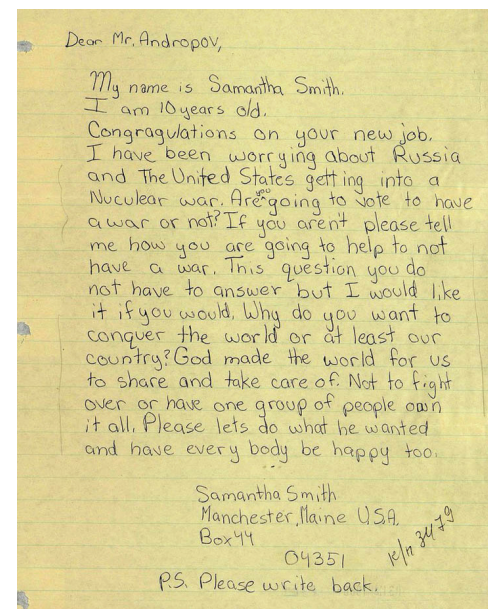 Dear Mr. Andropov,
My name is Samantha Smith.
I am 10 years old.
Congragulations on your new job.
I have been worrying about Russia
and The United States getting into a
Nuculear war. Are you going to vote to have
a war or not? If you aren't please tell
me how you are going to help to not
have a war. This question you do
not have to answer but I would like
it if you would. Why do you want to
conquer the world or at least our
country? God made the world for us
to share and take care of. Not to fight
over or have one group of people own
it all. Please lets do what he wanted
and have every body be happy too.
Samantha Smith
Manchester, Maine U.S.A.
Box 44
04351
к/п 3479
P.S. Please write back.